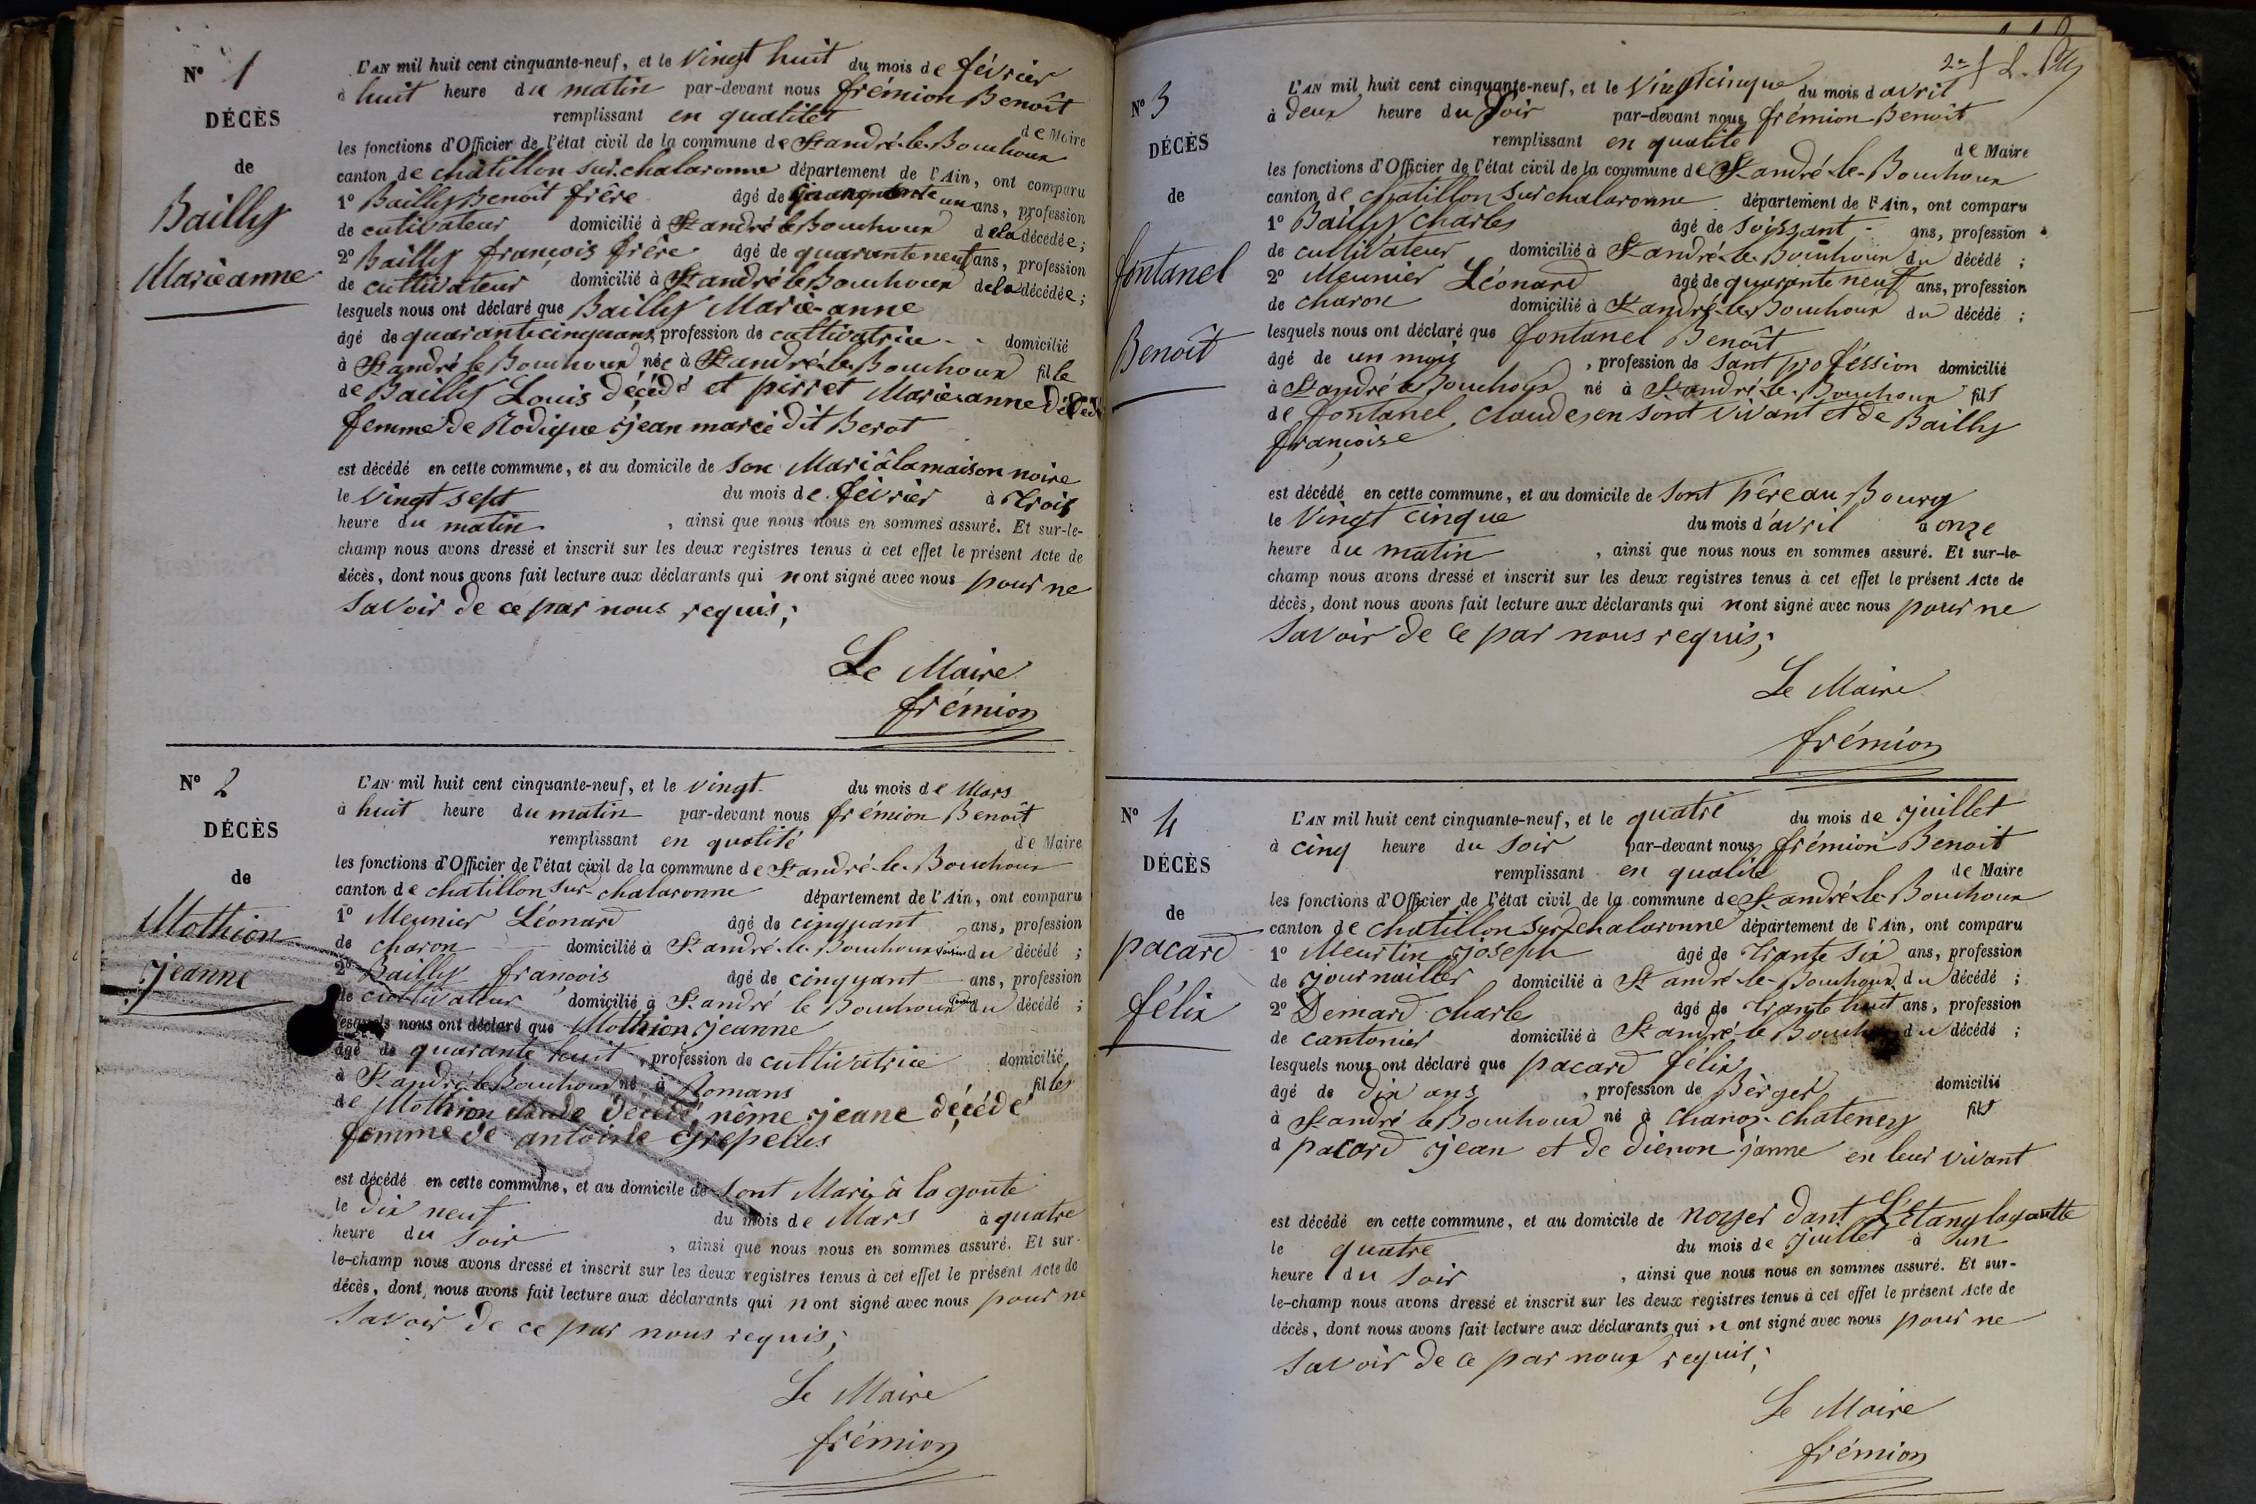 N° 1
DÉCÈS
de
Bailly
Marie anne
L'AN mil huit cent cinquante-neuf, et le vingt huit du mois de février
à huit heure du matin par-devant nous frémion Benoît
remplissant en qualitét de Maire
les fonctions d'Officier de l'état civil de la commune de St andré-le-Bouchoux
canton de chatillon sur chalaronne département de l'Ain, ont comparu
1° Bailly Benoît frère âgé de un ans, profession
de cutivateur domicilié à St andré le Bouchoux de la décédée ;
2° Bailly françois frère âgé de quarante neuf ans, profession
de cultivateur domicilié à St andré le Bouchoux de la décédée ;
lesquels nous ont déclaré que Bailly Marie-anne
âgé de quarantecinquans, profession de cultivatrice - - domicilié
à St andré le Bouchoux née à St andré-le-Bouchoux fille
de Bailly Louis décédé et pirret Marie-anne Décédé
femme de Rodique jean marie dit Berot
est décédé en cette commune, et au domicile de son Mari à la maison noire
le vingt sept du mois de février à trois
heure du matin , ainsi que nous nous en sommes assuré. Et sur-le-
champ nous avons dressé et inscrit sur les deux registres tenus à cet effet le présent Acte de
décès, dont nous avons fait lecture aux déclarants qui n ont signé avec nous pour ne
savoir de ce par nous requis ;
Le Maire
frémion
N° 2
DÉCÈS
de
Mothion
jeanne
L'AN mil huit cent cinquante-neuf, et le vingt du mois de Mars
à huit heure du matin par-devant nous frémion Benoît
remplissant en qualité de Maire
les fonctions d'Officier de l'état civil de la commune de St andré-le-Bouchoux
canton de chatillon sur chalaronne département de l'Ain, ont comparu
1° Meunier Léonard âgé de cinquant ans, profession
de charon domicilié à St andré-le-Bouchoux voisin du décédé ;
2° Bailly françois âgé de cinquant ans, profession
de cultivateur domicilié à St andré le Bouchoux voisin du décédé ;
lesquels nous ont déclaré que Mothion jeanne
âgé de quarante huit , profession de cultivatrice domicilié
à St andré le Bouchoux né à Romans filles
de Mothion claude décédé, nême jeane décédé
femme de antoine Grepelles
est décédé en cette commune, et au domicile de sont Mari à la goute
le dix neuf du mois de Mars à quatre
heure du soir , ainsi que nous nous en sommes assuré. Et sur-
le-champ nous avons dressé et inscrit sur les deux registres tenus à cet effet le présent Acte de
décès, dont nous avons fait lecture aux déclarants qui n ont signé avec nous pour ne
savoir de ce par nous requis ;
Le Maire
frémion
N° 3
DÉCÈS
de
fontanel
Benoît
L'AN mil huit cent cinquante-neuf, et le vingtcinque du mois d avril
à deux heure du soir par-devant nous frémion Benoît
remplissant en qualité de Maire
les fonctions d'Officier de l'état civil de la commune de St andré-le-Bouchoux
canton de chatillon sur chalaronne département de l'Ain, ont comparu
1° Bailly Charles âgé de soissant - ans, profession
de cultivateur domicilié à St andré-le-Bouchoux du décédé ;
2° Meunier Léonard âgé de quarante neuf ans, profession
de charon domicilié à St andré-le-Bouchoux du décédé ;
lesquels nous ont déclaré que fontanel Benoît
âgé de un mois , profession de sant proféssion domicilié
à St andré le Bouchoux né à St andré-le-Bouchoux fils
de fontanel, claude, en sont vivant et de Bailly
françoise
est décédé en cette commune, et au domicile de sont père au Bourg
le vingt cinque du mois d'avril à onze
heure du matin , ainsi que nous nous en sommes assuré. Et sur-le-
champ nous avons dressé et inscrit sur les deux registres tenus à cet effet le présent Acte de
décès, dont nous avons fait lecture aux déclarants qui n ont signé avec nous pour ne
savoir de ce par nous requis ;
Le Maire
frémion
N° 4
DÉCÈS
de
pacard
félix
L'AN mil huit cent cinquante-neuf, et le quatre du mois de juillet
à cinq heure du soir par-devant nous frémion Benoit
remplissant en qualité de Maire
les fonctions d'Officier de l'état civil de la commune de St andré-le-Bouchoux
canton de chatillon sur chalaronne département de l'Ain, ont comparu
1° Meurtin joseph âgé de trante six ans, profession
de journailler domicilié à St andré-le-Bouchoux du décédé ;
2° Demard charle âgé de trante huit ans, profession
de cantonier domicilié à St andré-le-Bouch du décédé ;
lesquels nous ont déclaré que pacard félix
âgé de dix ans , profession de Bèrger domicilié
à St andré le Bouchoux né à chanoz-chateney fils
d pacard jean et de dienon janne en leur vivant
est décédé en cette commune, et au domicile de noyer dant L'Etang lagoutte
le quatre du mois de juillet à un
heure du soir , ainsi que nous nous en sommes assuré. Et sur-
le-champ nous avons dressé et inscrit sur les deux registres tenus à cet effet le présent Acte de
décès, dont nous avons fait lecture aux déclarants qui n ont signé avec nous pour ne
savoir de ce par nous requis ;
Le Maire
frémion